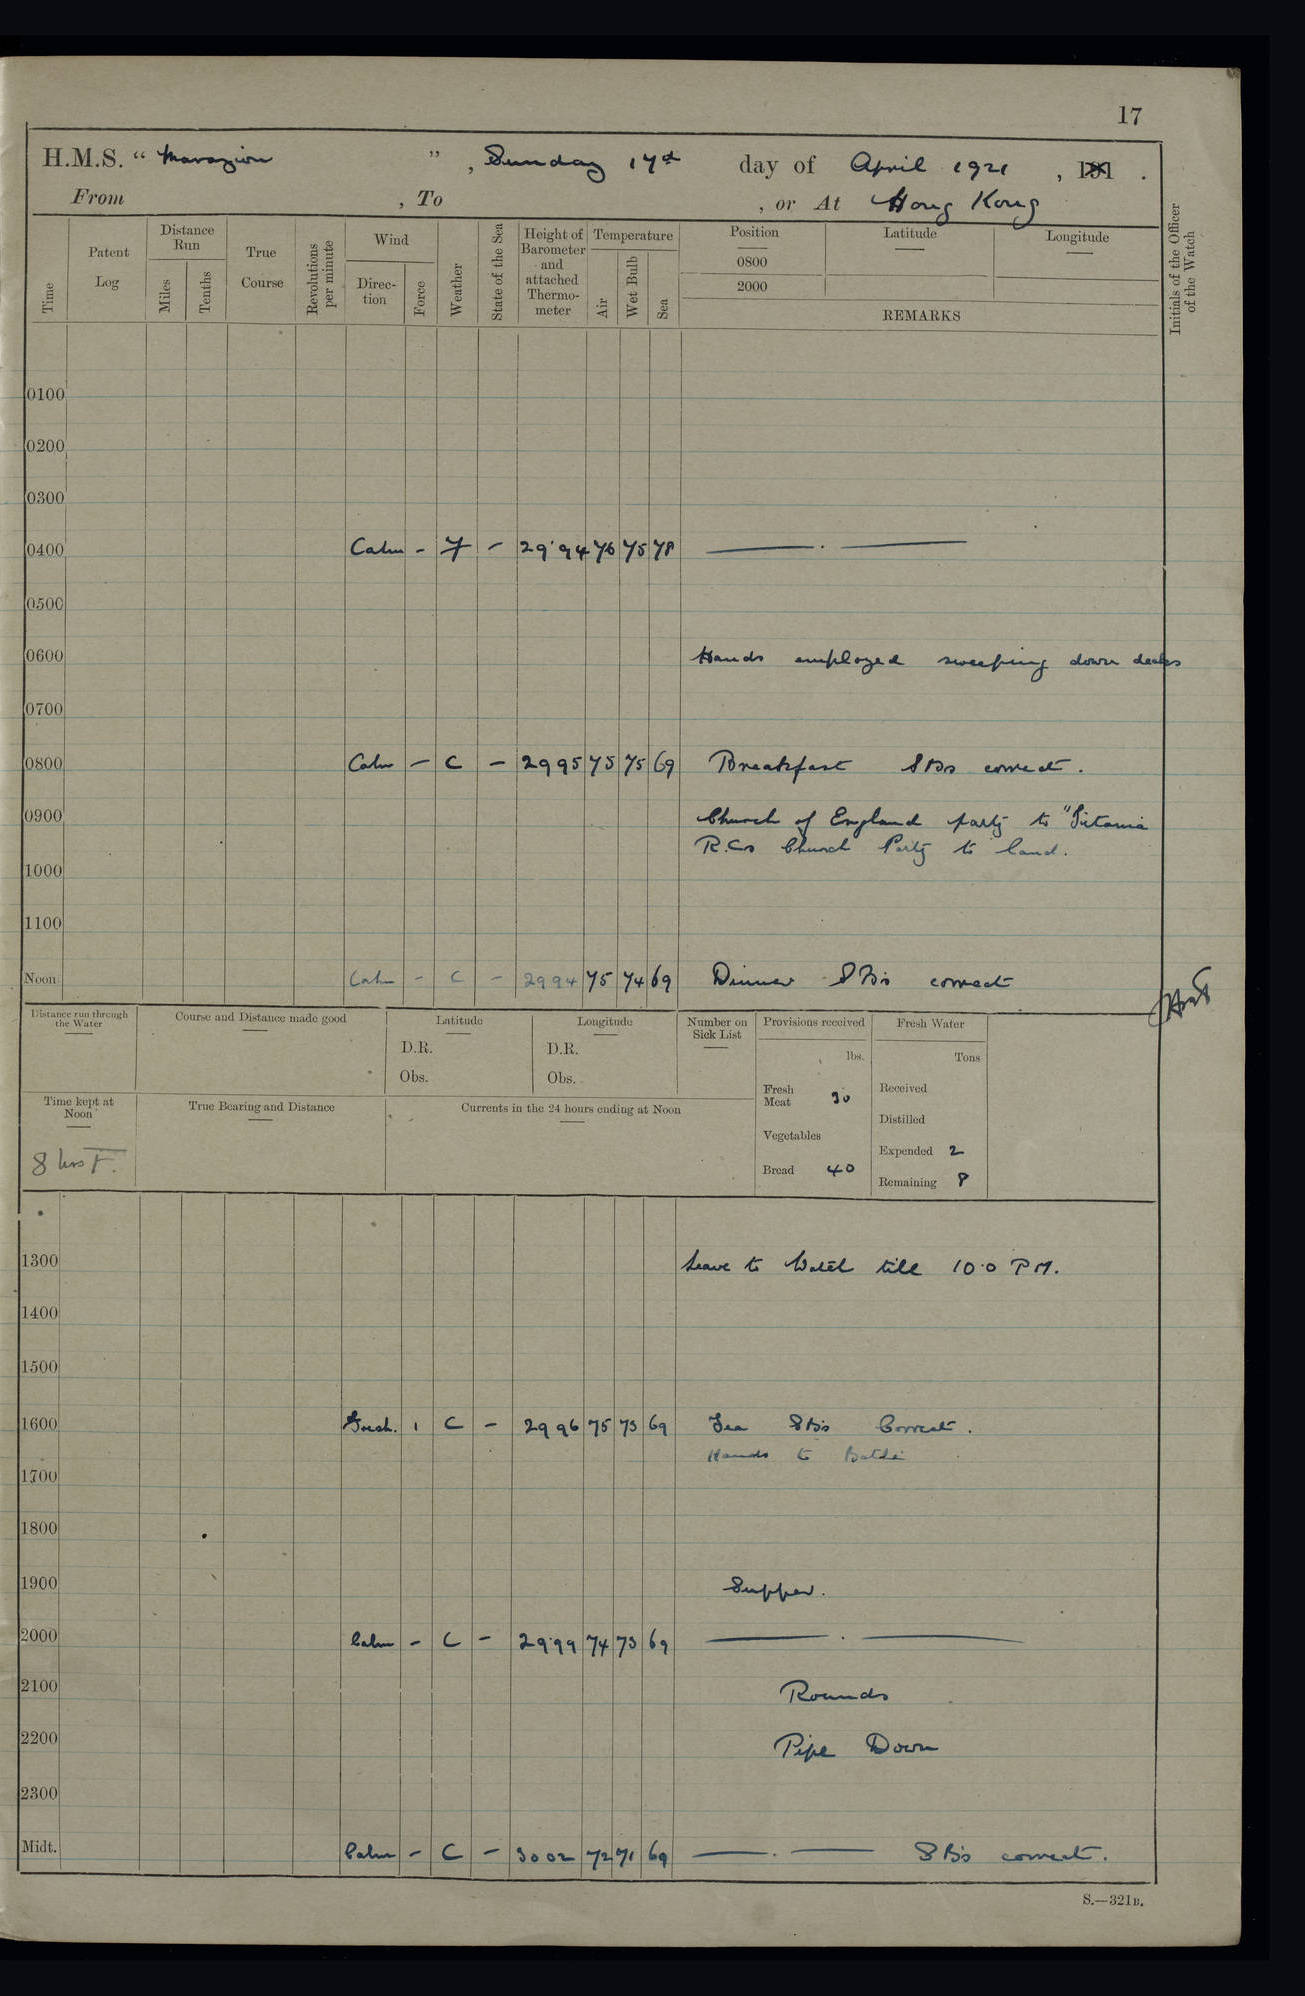 17
H.M.S. “ Marazion ”, Sunday 17th day of April 1921, 191 .
From , To , or At Hong Kong
Time
Patent Log
Distance Run
Miles
Tenths
True Course
Revolutions per minute
Wind
Direction
Force
Weather
State of the Sea
Height of Barometer and attached Thermometer
Temperature
Air
Wet Bulb
Sea
Position
0800
2000
Latitude
Longitude
REMARKS
Initials of the Officer of the Watch
0100
0200
0300
0400 Calm - 7 - 29.94 76 75 78
0500
0600 Hands employed sweeping down decks
0700
0800 Calm - C - 2995 75 75 69 Breakfast SBs correct.
0900 Church of England party to "Titania
R.Cs Church Party to land.
1000
1100
Noon Calm - C - 2994 75 74 69 Dinner SBs correct
Distance run through the Water
Course and Distance made good
Latitude
D.R.
Obs.
Longitude
D.R.
Obs.
Number on Sick List
Provisions received
lbs.
Fresh Meat 30
Vegetables
Bread 40
Fresh Water
Tons
Received
Distilled
Expended 2
Remaining 8
Time kept at Noon
8 hrs F.
True Bearing and Distance
Currents in the 24 hours ending at Noon
1300 Leave to Watch till 10.0 PM.
1400
1500
1600 1 C - 2996 75 73 69 Tea SBs Correct.
Hands to Bathe
1700
1800
1900 Supper.
2000 Calm - C - 29.99 74 73 69
2100 Rounds
2200 Pipe Down
2300
Midt. Calm - C - 3002 72 71 69 SBs correct.
S.—321B.